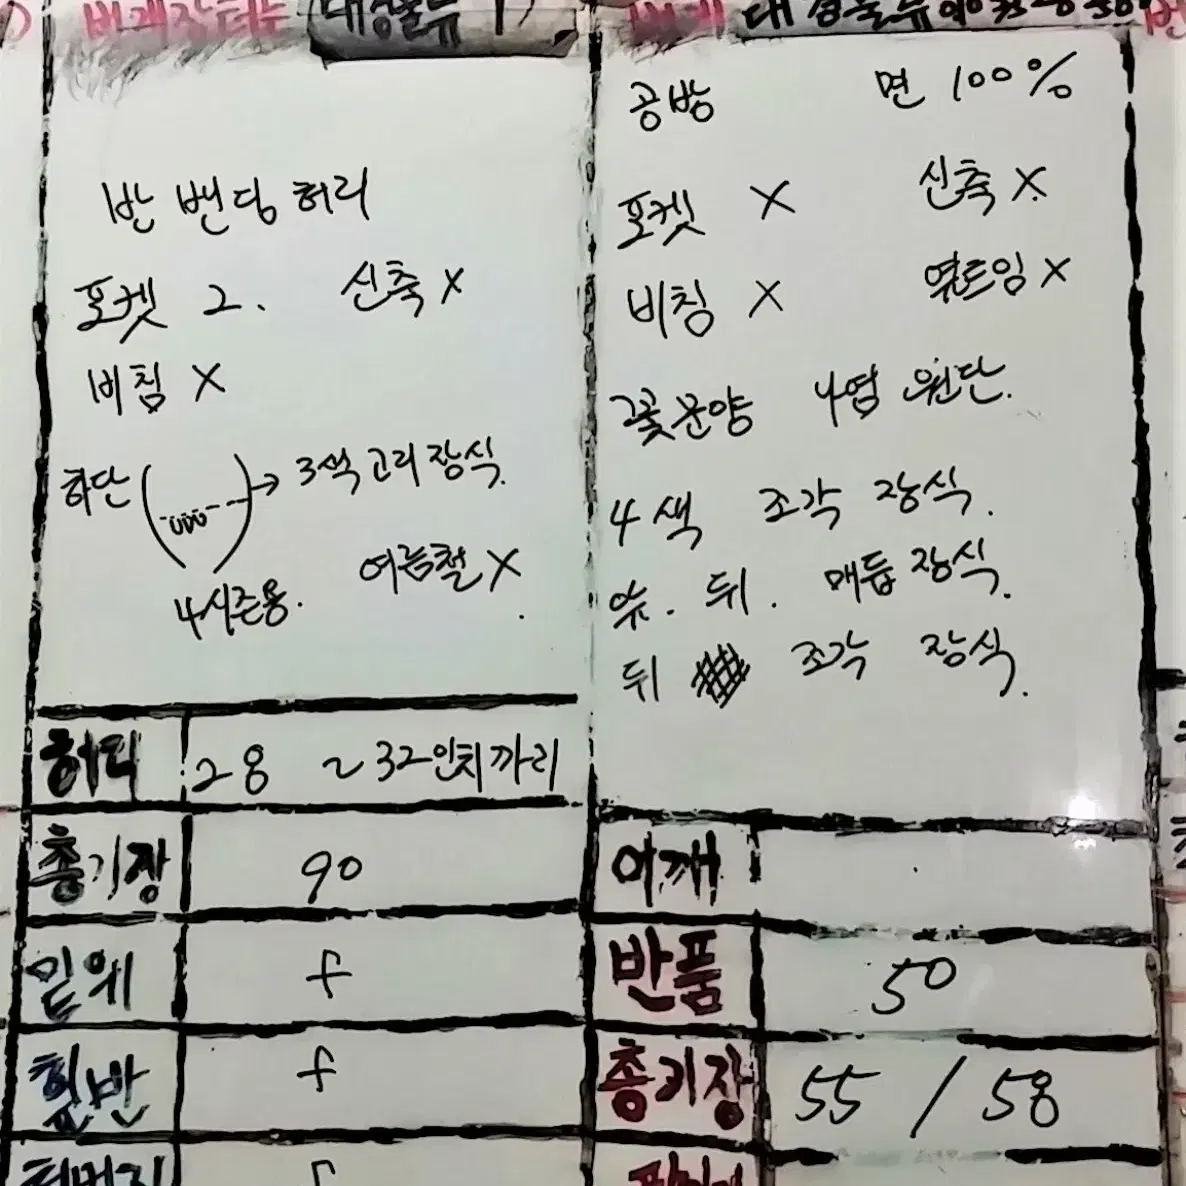 번개장터
대성물류
반 밴딩 허리
포켓 2. 신축 X
비침 X
하단 → 3색 고리 장식.
4시즌용. 여름철 X.
허리 28 ~ 32인치까리
총기장 90
밑위 f
힙반 f
허벅지 f
번개 대성물류
공방 면 100%
포켓 X 신축 X.
비침 X 옆트임 X
꽃문양 나염 원단.
4색 조각 장식.
앞. 뒤. 매듭 장식.
뒤 조각 장식.
어깨
반품 50
총기장 55 / 58